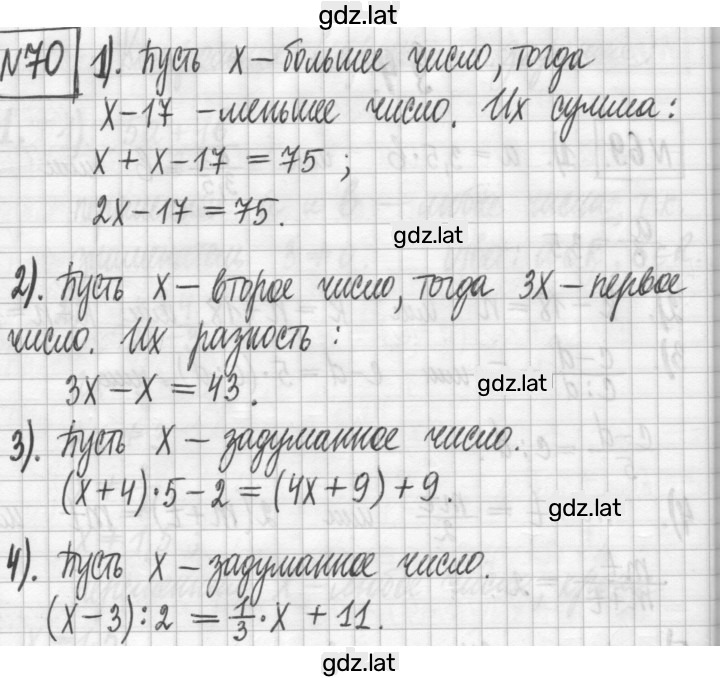 gdz.lat
№70 1). Пусть x – большее число, тогда
x – 17 – меньшее число. Их сумма:
x + x – 17 = 75 ;
2x – 17 = 75.
gdz.lat
2). Пусть x – второе число, тогда 3x – первое
число. Их разность :
3x – x = 43 .
gdz.lat
3). Пусть x – задуманное число.
(x + 4) · 5 – 2 = (4x + 9) + 9 .
gdz.lat
4). Пусть x – задуманное число.
(x – 3) : 2 = 1/3 · x + 11.
gdz.lat